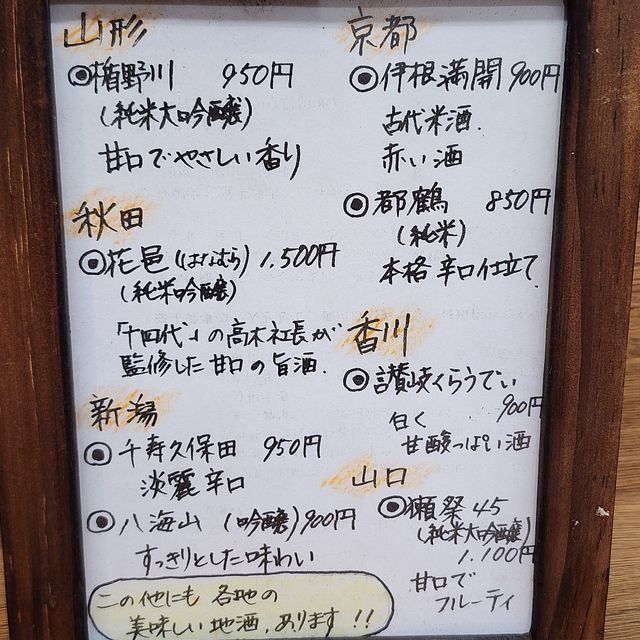 山形
◉楯野川 950円
(純米大吟醸)
甘口でやさしい香り
秋田
◉花邑(はなむら) 1,500円
(純米吟醸)
「十四代」の高木社長が
監修した甘口の旨酒.
新潟
◉千寿久保田 950円
淡麗辛口
◉八海山 (吟醸)900円
すっきりとした味わい
この他にも 各地の
美味しい地酒、あります!!
京都
◉伊根満開 900円
古代米酒.
赤い酒
◉都鶴 850円
(純米)
本格辛口仕立て.
香川
◉讃岐くらうでぃ
900円
白く
甘酸っぱい酒
山口
◉獺祭45
(純米大吟醸)
1.100円
甘口で
フルーティ